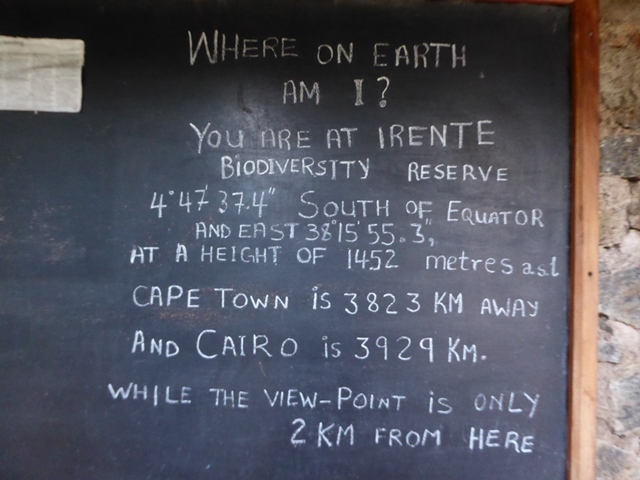 WHERE ON EARTH
AM I?
YOU ARE AT IRENTE
BIODIVERSITY RESERVE
4°47'37.4" SOUTH OF EQUATOR
AND EAST 38°15'55.3",
AT A HEIGHT OF 1452 metres asl
CAPE TOWN is 3823 KM AWAY
AND CAIRO is 3929 KM.
WHILE THE VIEW-POINT is ONLY
2 KM FROM HERE